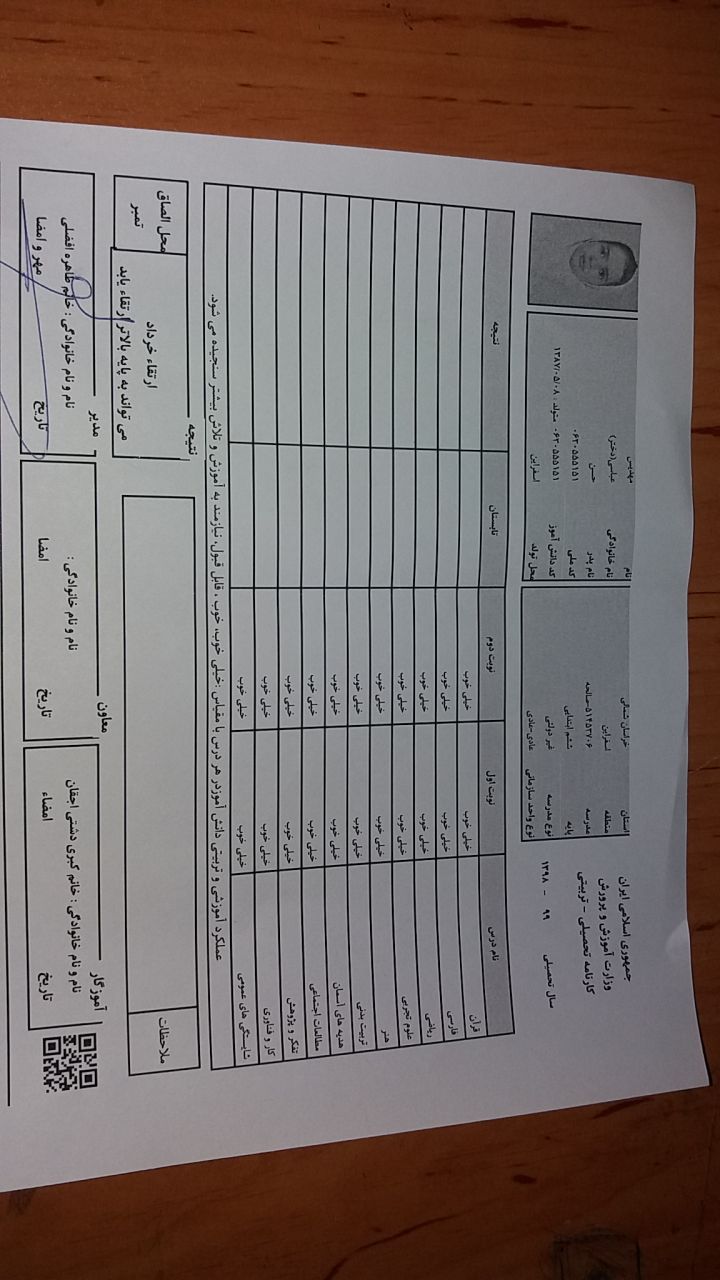 جمهوری اسلامی ایران
وزارت آموزش و پرورش
کارنامه تحصیلی - تربیتی
سال تحصیلی ۹۹ - ۱۳۹۸
استان خراسان شمالی
منطقه اسفراین
مدرسه ۵۱۴۵۳۷۰۶-صالحه
پایه ششم ابتدایی
نوع مدرسه غیر دولتی
نوع واحد سازمانی عادی-عادی
نام مهدیس
نام خانوادگی عباسی(دختر)
نام پدر حسن
کد ملی ۰۶۲۰۵۵۵۱۵۱
کد دانش آموز ۰۶۲۰۵۵۵۱۵۱ متولد : ۱۳۸۷/۰۵/۰۸
محل تولد اسفراین
نام درس نوبت اول نوبت دوم تابستان نتیجه
قرآن خیلی خوب خیلی خوب
فارسی خیلی خوب خیلی خوب
ریاضی خیلی خوب خیلی خوب
علوم تجربی خیلی خوب خیلی خوب
هنر خیلی خوب خیلی خوب
تربیت بدنی خیلی خوب خیلی خوب
هدیه های آسمان خیلی خوب خیلی خوب
مطالعات اجتماعی خیلی خوب خیلی خوب
تفکر و پژوهش خیلی خوب خیلی خوب
کار و فناوری خیلی خوب خیلی خوب
شایستگی های عمومی خیلی خوب خیلی خوب
عملکرد آموزشی و تربیتی دانش آموزدر هر درس با مقیاس :خیلی خوب، خوب ، قابل قبول، نیازمند به آموزش و تلاش بیشتر سنجیده می شود.
ملاحظات
نتیجه
ارتقاء خرداد
می تواند به پایه بالاتر ارتقاء یابد
محل الصاق
تمبر
آموزگار
نام و نام خانوادگی : خانم کبری دشتی اجقان
امضاء تاریخ
معاون
نام و نام خانوادگی :
امضا تاریخ
مدیر
نام و نام خانوادگی : خانم طاهره افضلی
مهر و امضا تاریخ